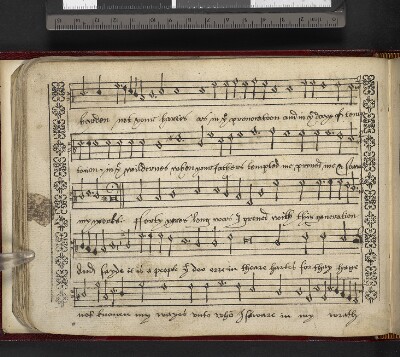 harden not your hartes as in yͤ provocation and in yͤ daye of temp
tation in yͤ wildernes when your fathers tempted me, proved me, & sawe
my workes. Forty yeres long was I greved with this generation
And sayde it is a people yͭ doo erre in theare hartes for they have
not knowen my wayes unto who I sware in my wrath